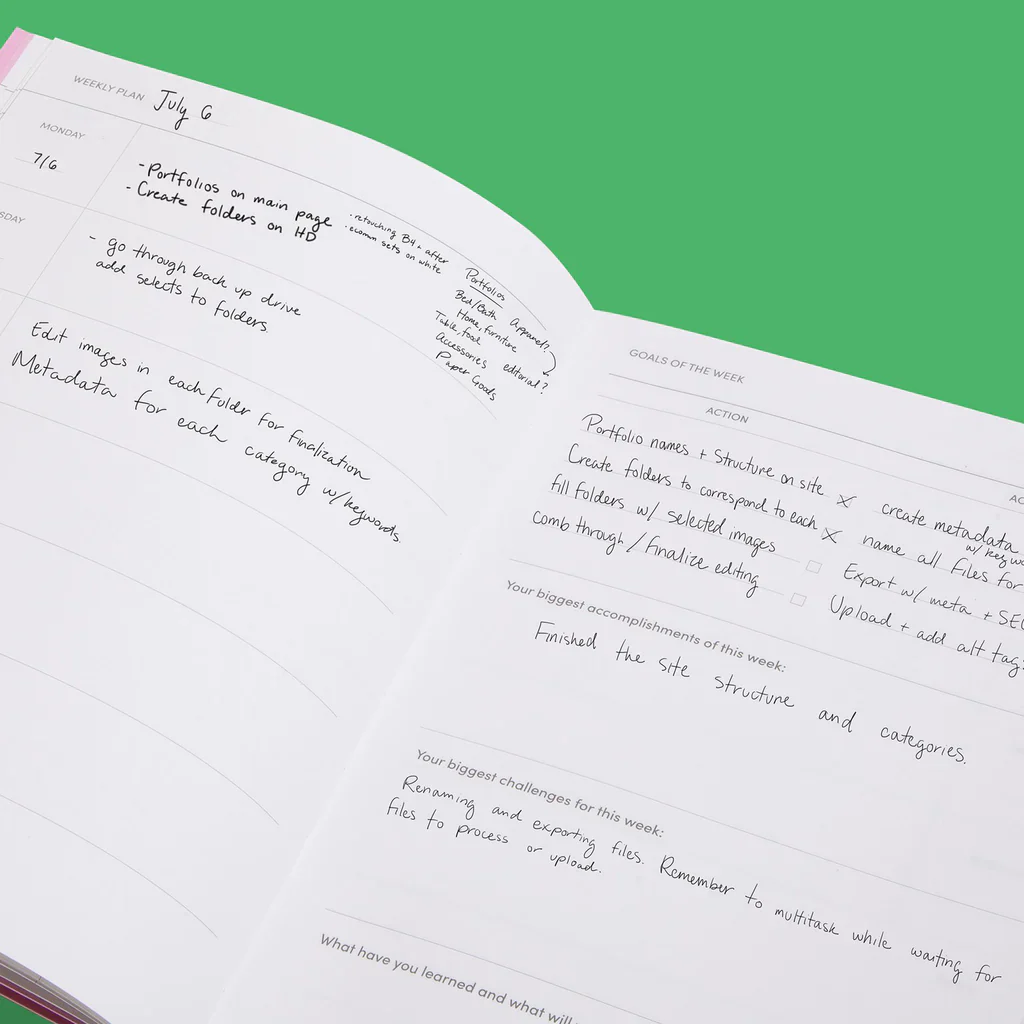 WEEKLY PLAN July 6
MONDAY
7/6
- Portfolios on main page
- Create folders on HD
· retouching B4 + after
· ecomm sets on white
SDAY
- go through back up drive
add selects to folders
Portfolios
Bed/Bath Apparel?
Home, furniture
Table, food
Accessories editorial?
Paper Goods
Edit images in each Foldr for finalization
Metadata for each
category w/keywords.
GOALS OF THE WEEK
ACTION
Portfolio names + Structure on site X
Create folders to correspond to each X
fill folders w/ selected images
comb through / finalize editing
AC
create metadata
w/ keyw
name all files for
Export w/ meta + SEO
Upload + add alt tags
Your biggest accomplishments of this week:
Finished the site structure and categories.
Your biggest challenges for this week:
Renaming and exporting files. Remember to multitask while waiting for
files to process or upload.
What have you learned and what will